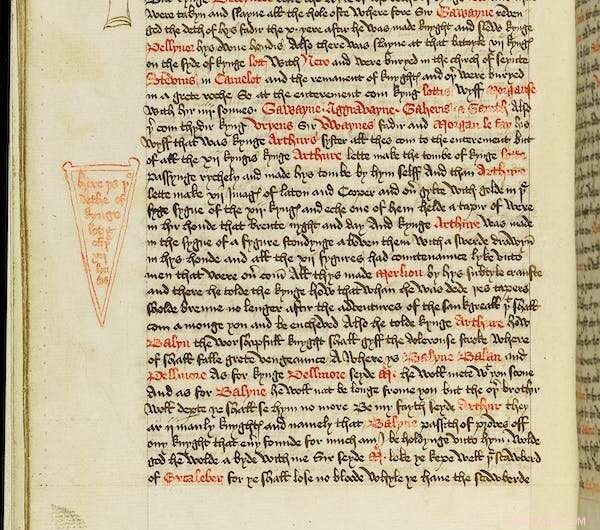 were takyn and slayne all the hole oste Where fore Sir Gawayne reven
ged the deth of hys fadir the x yere aftir he was made knyght and slew kynge
Pellynor hys owne hondis Also there was slayne at that batayle xij kyngꝭ
on the syde of kynge lott with Nero and were buryed in the church of seynte
Stevins in Camelot and the remanent of knyghtꝭ and oþ were buryed
in a grete roche So at the enterement com kyng lottis wyff Morgause
with hir iiij sonnes Gawayne Aggravayne Gaheris & Gareth Also
þ com thydir kyng Uryens Sir Uwaynes fadir and Morgan le fay his
wyff that was kynge Arthurs syster all thes com to the enterement but
of all the xij kyngis kynge Arthure lette make the tombe of kynge
Passynge rychely and made hys tombe by hym selff And than Arthure
lette make xij Imagꝭ of laton and Cooper and ou gylte with golde in þe
sygne of the xij kyngꝭ and eche one of hem helde a tapir of wexe
in hir honde that brente nyght and day And kynge Arthure was made
in the sygne of a fygure stondynge aboven them with a swerde drawyn
in hys honde and all the xij fygures had countenaunce lyke unto
men that were ou com All thys made Merlion by hys subtyle craufte
and there he tolde the kynge how that whan he was dede thes tapers
sholde brenne no longer aftir the adventures of the sankgreall þt shall
com a monge you and be encheved Also he tolde kynge Arthure how
Balyn the worshupfull knyght shall gyff the dolerouse stroke Where
of shall falle grete vengeaunce A Where ys Balyne Balan and
Pellinore As for kynge Pellinore seyde M he woll mete wt you sone
And as for Balyne he woll nat be longe frome you but the oþ brothir
woll departe ye shall se hym no more Be my fayth seyde Arthur they
ar ij manly knyghtꝭ and namely that Balyne passith of proves off
ony knyght that ever y founde for much am I be holdynge unto hym Wolde
god he wolde a byde with me Sir seyde M loke ye kepe well þe scawberd
of Excaleber for ye shall lose no bloode whyle ye have the scawberde
here ys þe
dethe of
kynge
lot &
of þe
xij
kyngꝭ